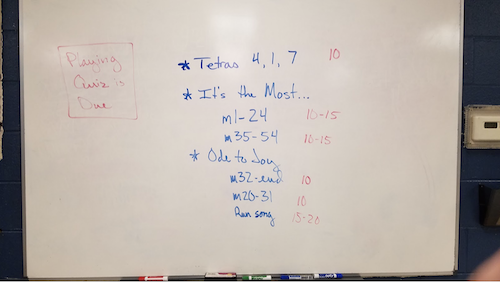 Playing
Quiz is
Due
* Tetras 4, 1, 7 10
* It's the Most...
m1-24 10-15
m35-54 10-15
* Ode to Joy
m32-end 10
m20-31 10
Run song 15-20